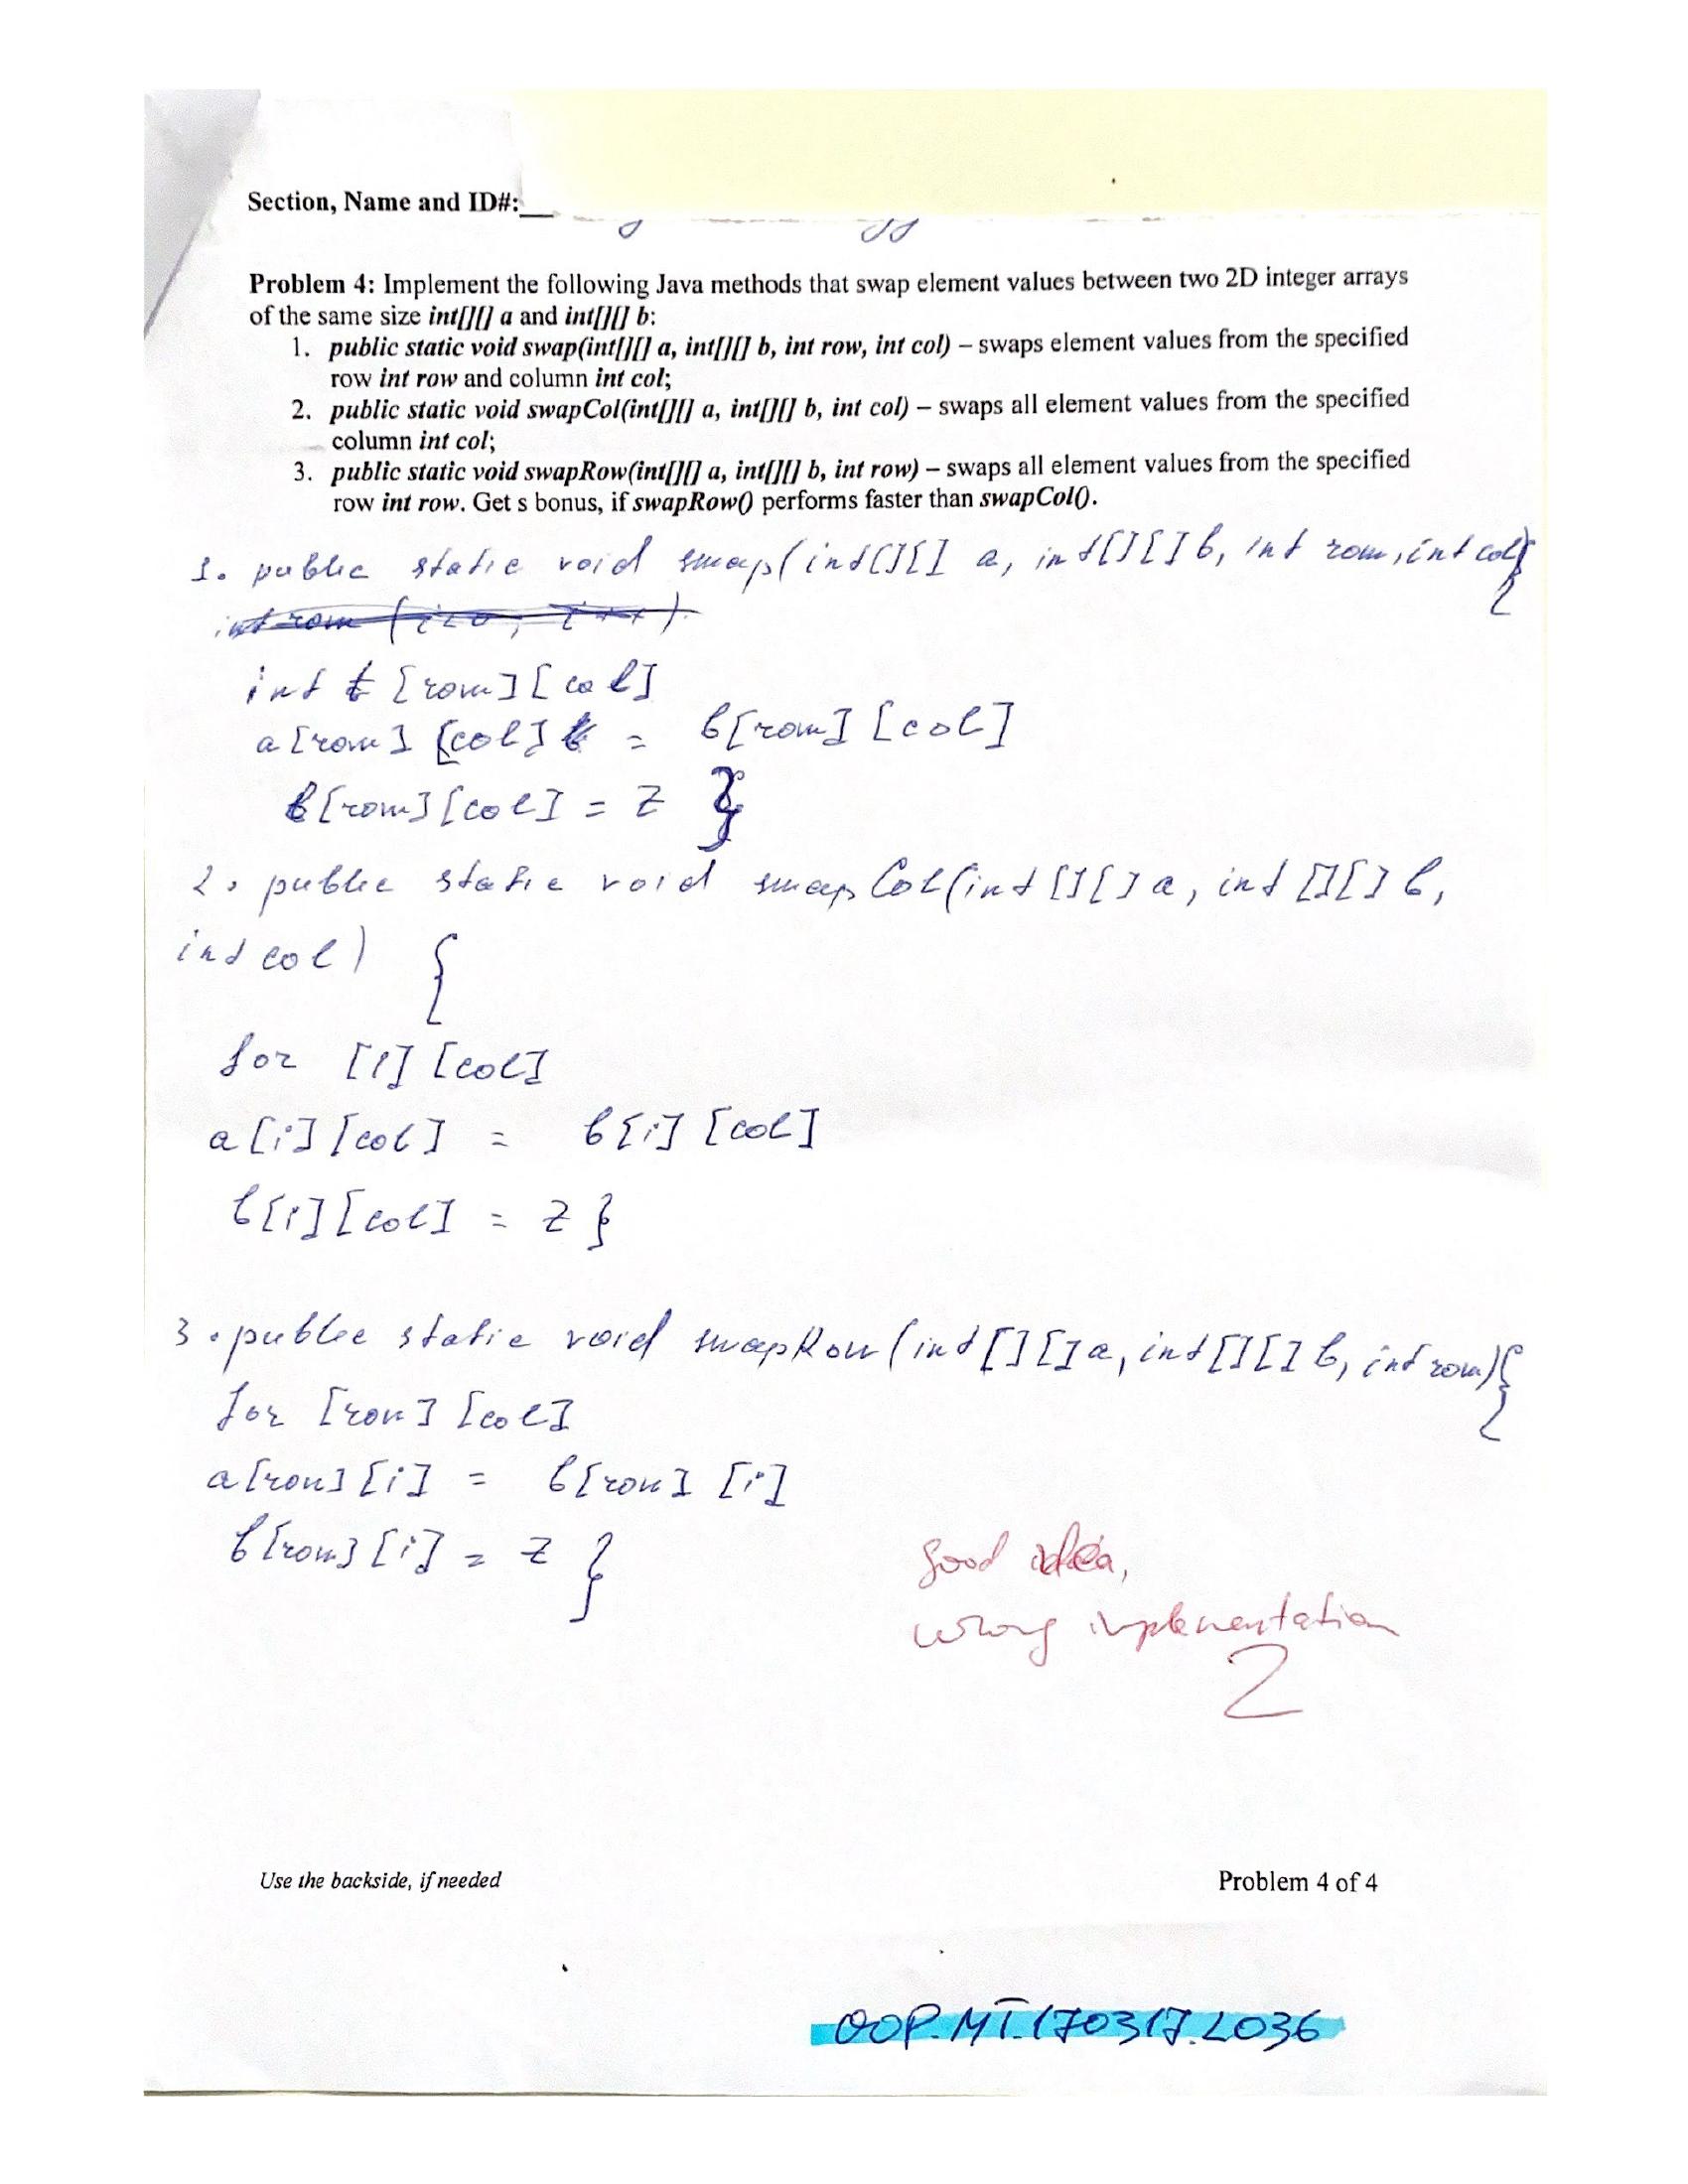 Section, Name and ID#:
Problem 4: Implement the following Java methods that swap element values between two 2D integer arrays
of the same size int[][] a and int[][] b:
1. public static void swap(int[][] a, int[][] b, int row, int col) – swaps element values from the specified
row int row and column int col;
2. public static void swapCol(int[][] a, int[][] b, int col) – swaps all element values from the specified
column int col;
3. public static void swapRow(int[][] a, int[][] b, int row) – swaps all element values from the specified
row int row. Get s bonus, if swapRow() performs faster than swapCol().
1. public static void swap(int[][] a, int[][] b, int row, int col){
int t [row][col]
a[row][col] = b[row][col]
b[row][col] = z }
2. public static void swapCol(int[][] a, int[][] b,
int col) {
for [i][col]
a[i][col] = b[i][col]
b[i][col] = z }
3. public static void swapRow(int[][] a, int[][] b, int row){
for [row][col]
a[row][i] = b[row][i]
b[row][i] = z }
good idea,
wrong implementation
2
Use the backside, if needed
Problem 4 of 4
OOP.MT.170317.2036